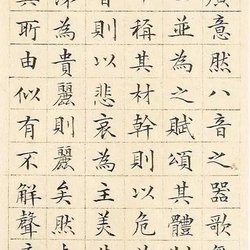 意然八音之器歌
並為之賦頌其體
稱其材幹則以危
則以悲哀為主美
為貴麗則麗矣然
其所由似有不解聲